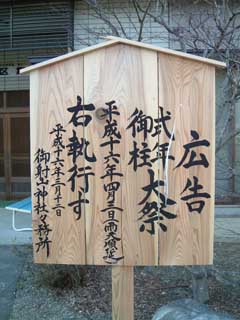 広告
式年
御柱大祭
平成十六年四月三日(雨天順延)
右執行す
平成十六年二月十二日
御射山神社々務所